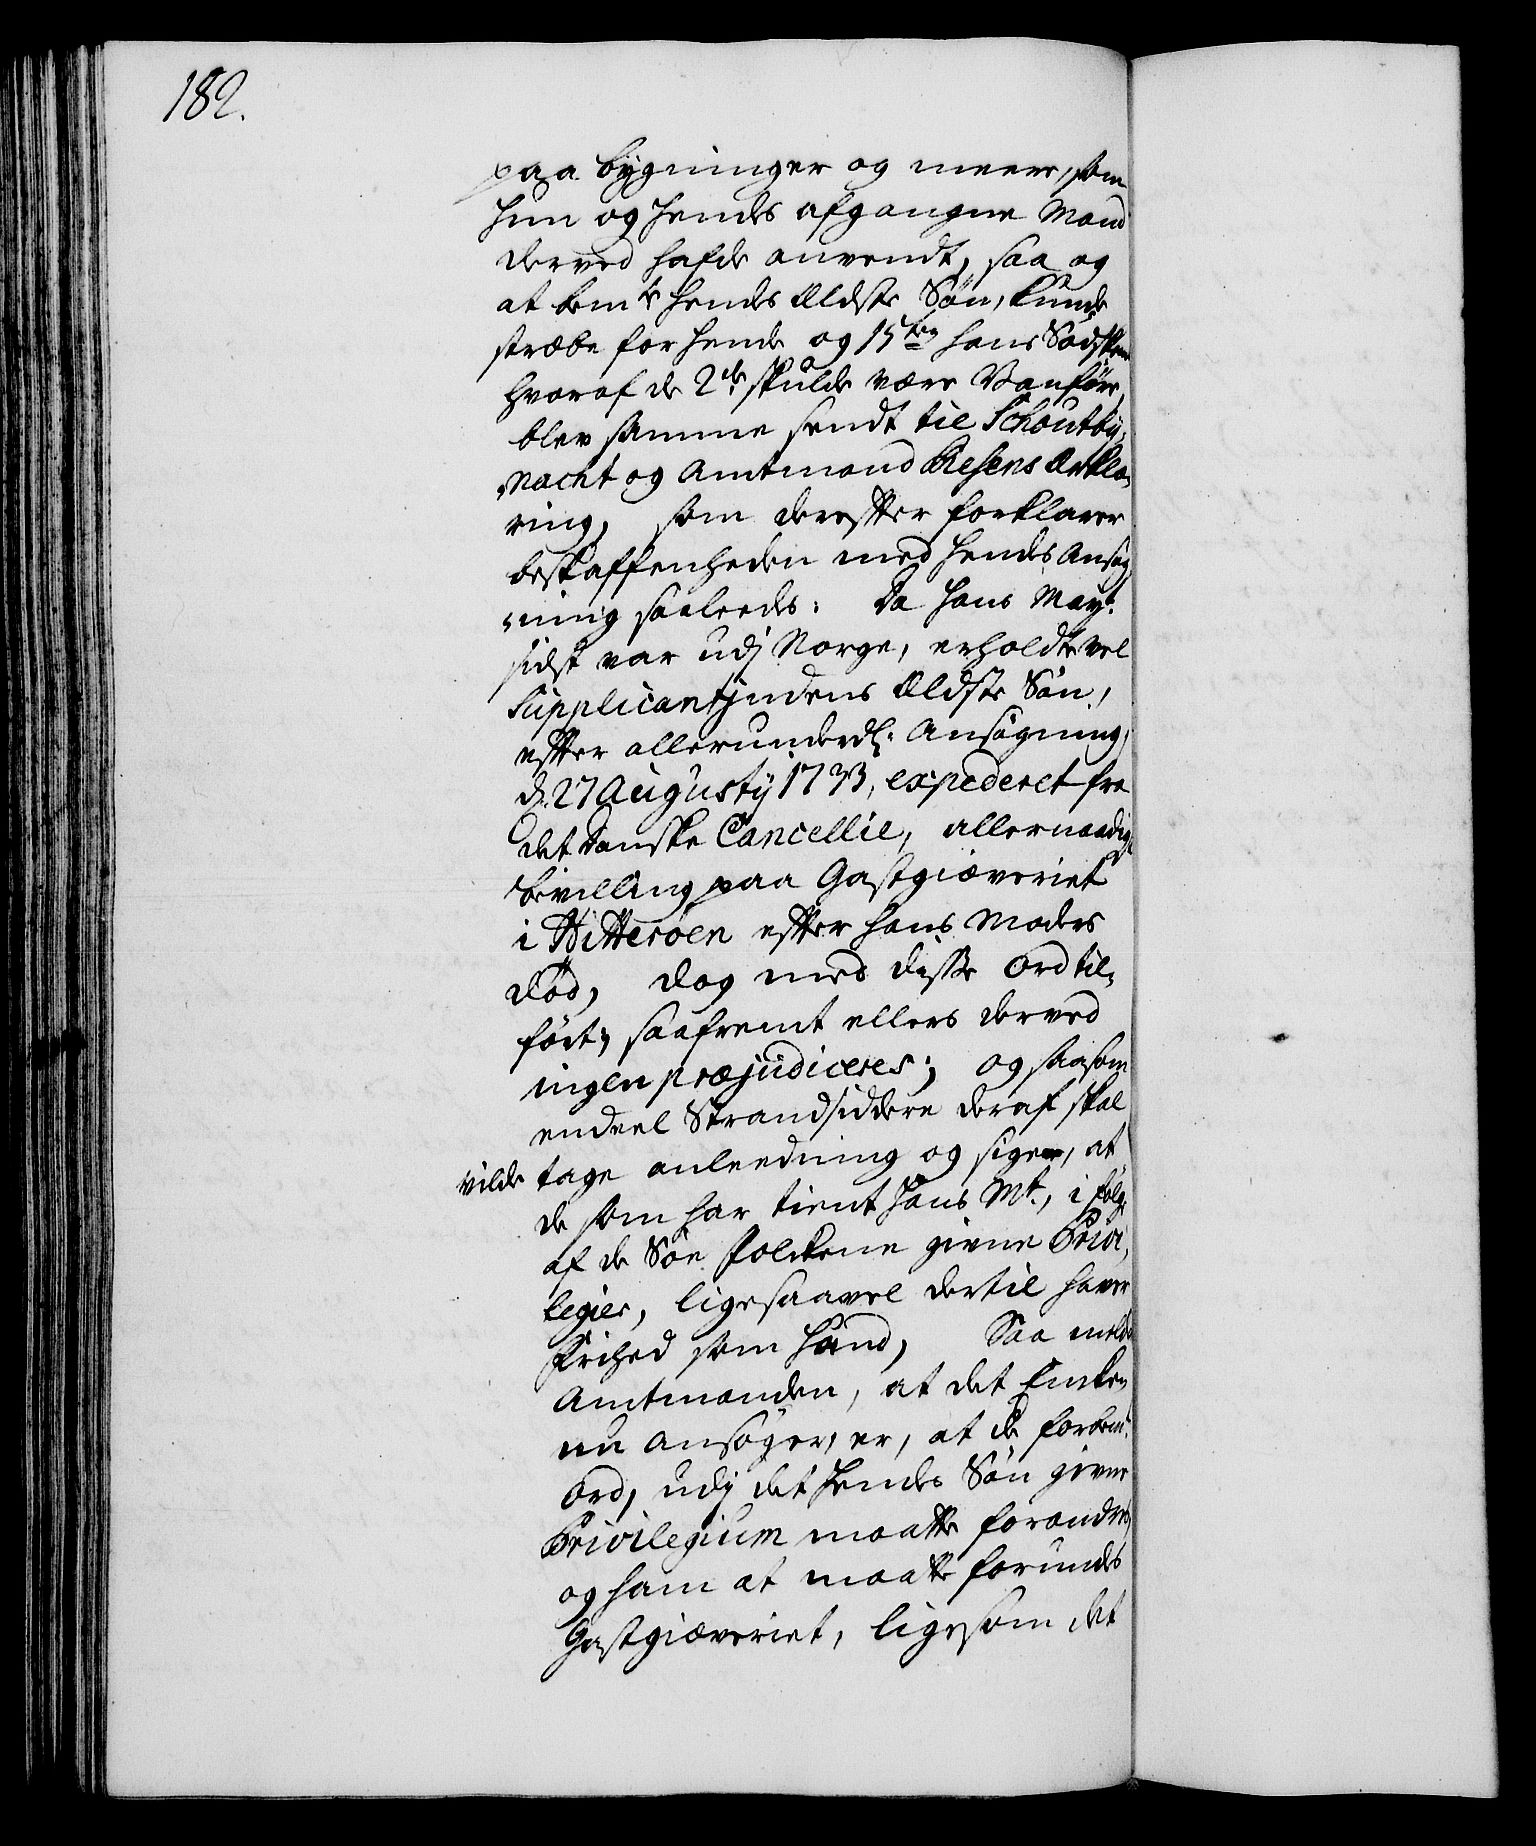 182.
paa bygninger og meere, som
hun og hendes afgangne Mand
derved hafde anvendt, saa og
at bemte hendes Eldste Søn, kunde
stræbe for hende og 15ten hans Sødskende
hvoraf de 2de skulde være Vanføre,
blev samme sendt til Schoutby-
Nacht og Amtmand Resens Erklæ-
ring, som derefter forklarer
beskaffenheden med hendes Ansøg-
ning saaleedes: Da Hans Mayt.
sidst var udj Norge, erholdte vel
Supplicantindens Eldste Søn,
efter allerunderdl: Ansøgning,
d. 27 Augusty 1733, expederet fra
det Danske Cancellie, allernaadigst
bevilling paa Gastgiæveriet
i Hitterøen efter hans Moders
død, dog med disse Ord til-
ført; saafremt ellers derved
ingen præjudiceres; og saasom
endeel Strandsiddere deraf skal
vilde tage anleedning og sigen, at
de som har tient Hans Mt., i følge
af de Søe Folckene givne Privi-
legier, ligesaavel dertil haver
Frihed som Hand, Saa melder
Amtmanden, at det Encken
nu ansøger, er, at de forbemte
Ord, udj det hendes Søn givne
Privilegium maatte forandres,
og ham at maatte forundes
Gastgiæveriet, ligesom det